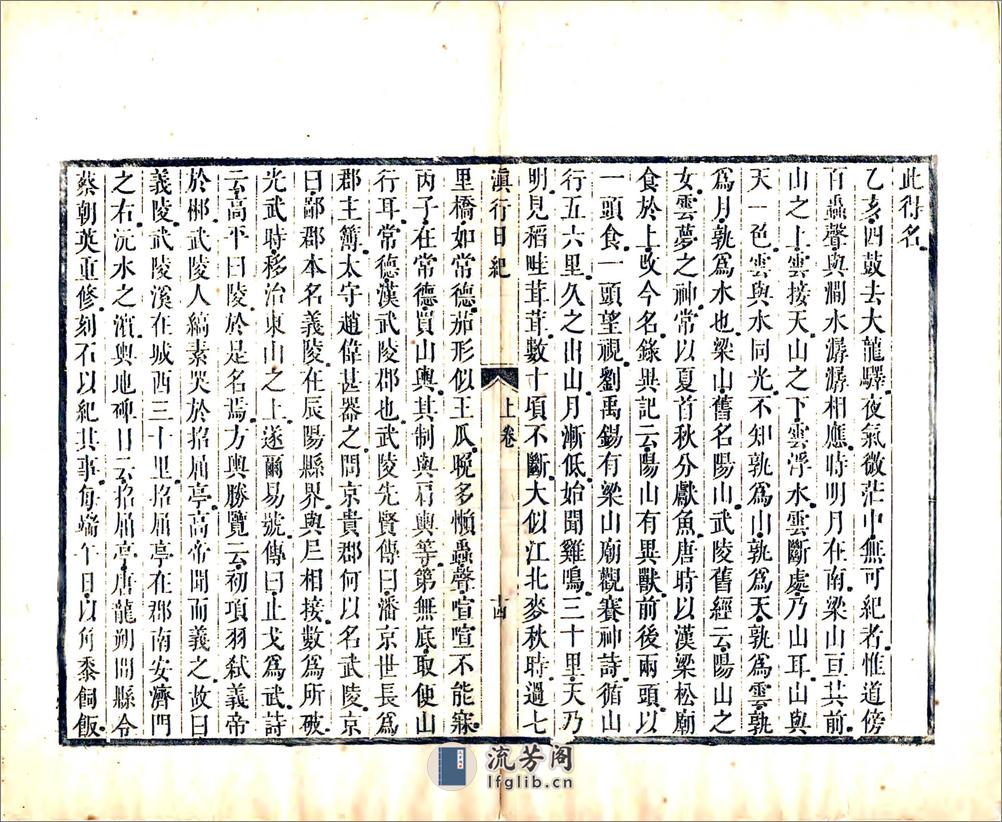 此得名
乙亥四鼓去大龍驛夜氣微茫中無可紀者惟道傍
百蟲聲與澗水潺潺相應時明月在南梁山亘其前
山之上雲接天山之下雲浮水雲斷處乃山耳山與
天一色雲與水同光不知孰爲山孰爲天孰爲雲孰
爲月孰爲水也梁山舊名陽山武陵舊經云陽山之
女雲夢之神常以夏首秋分獻魚唐時以漢梁松廟
食於上改今名錄異記云陽山有異獸前後兩頭以
一頭食一頭望視劉禹錫有梁山廟觀賽神詩循山
行五六里久之出山月漸低始聞雞鳴三十里天乃
明見稻畦茸茸數十頃不斷大似江北麥秋時過七
滇行日紀
上卷
十四
里橋如常德茄形似王瓜晚多懶蟲聲喧喧不能寐
丙子在常德買山輿其制與肩輿等第無底取便山
行耳常德漢武陵郡也武陵先賢傳曰潘京世長爲
郡主簿太守趙偉甚器之問京貴郡何以名武陵京
曰鄙郡本名義陵在辰陽縣界與尼相接數爲所破
光武時移治東山之上遂爾易號傳曰止戈爲武詩
云高平曰陵於是名焉方輿勝覽云初項羽弒義帝
於郴武陵人縞素哭於招屈亭高帝聞而義之故曰
義陵武陵溪在城西三十里招屈亭在郡南安濟門
之右沅水之濱輿地碑目云招屈亭唐龍朔間縣令
蔡朝英重修刻石以紀其事每端午日以角黍飼飯
流芳阁
lfglib.cn